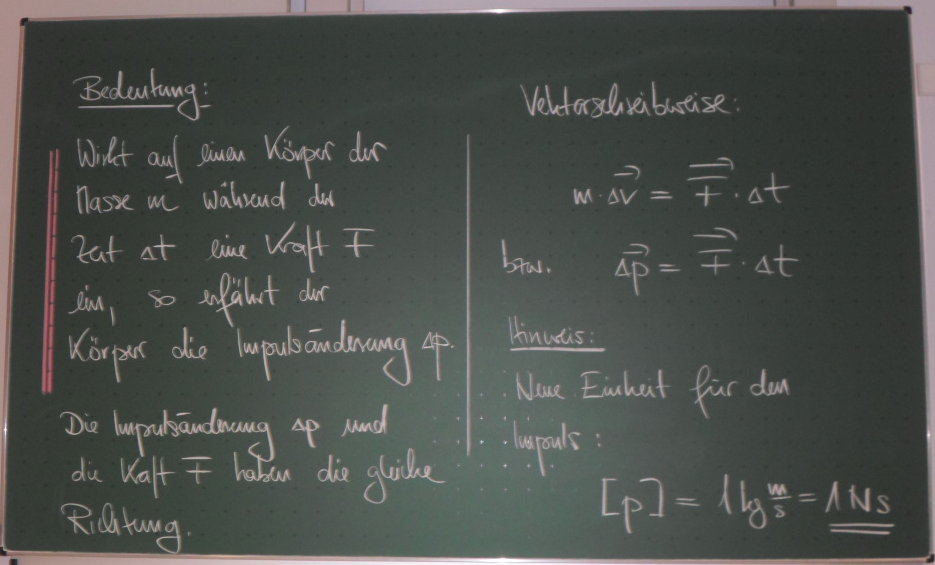 Bedeutung:
Wirkt auf einen Körper der
Masse m während der
Zeit Δt eine Kraft F
ein, so erfährt der
Körper die Impulsänderung Δp.
Die Impulsänderung Δp und
die Kraft F haben die gleiche
Richtung.
Vektorschreibweise:
m · Δv⃗ = F⃗ · Δt
bzw. Δp⃗ = F⃗ · Δt
Hinweis:
Neue Einheit für den
Impuls:
[p] = 1 kg m/s = 1 Ns